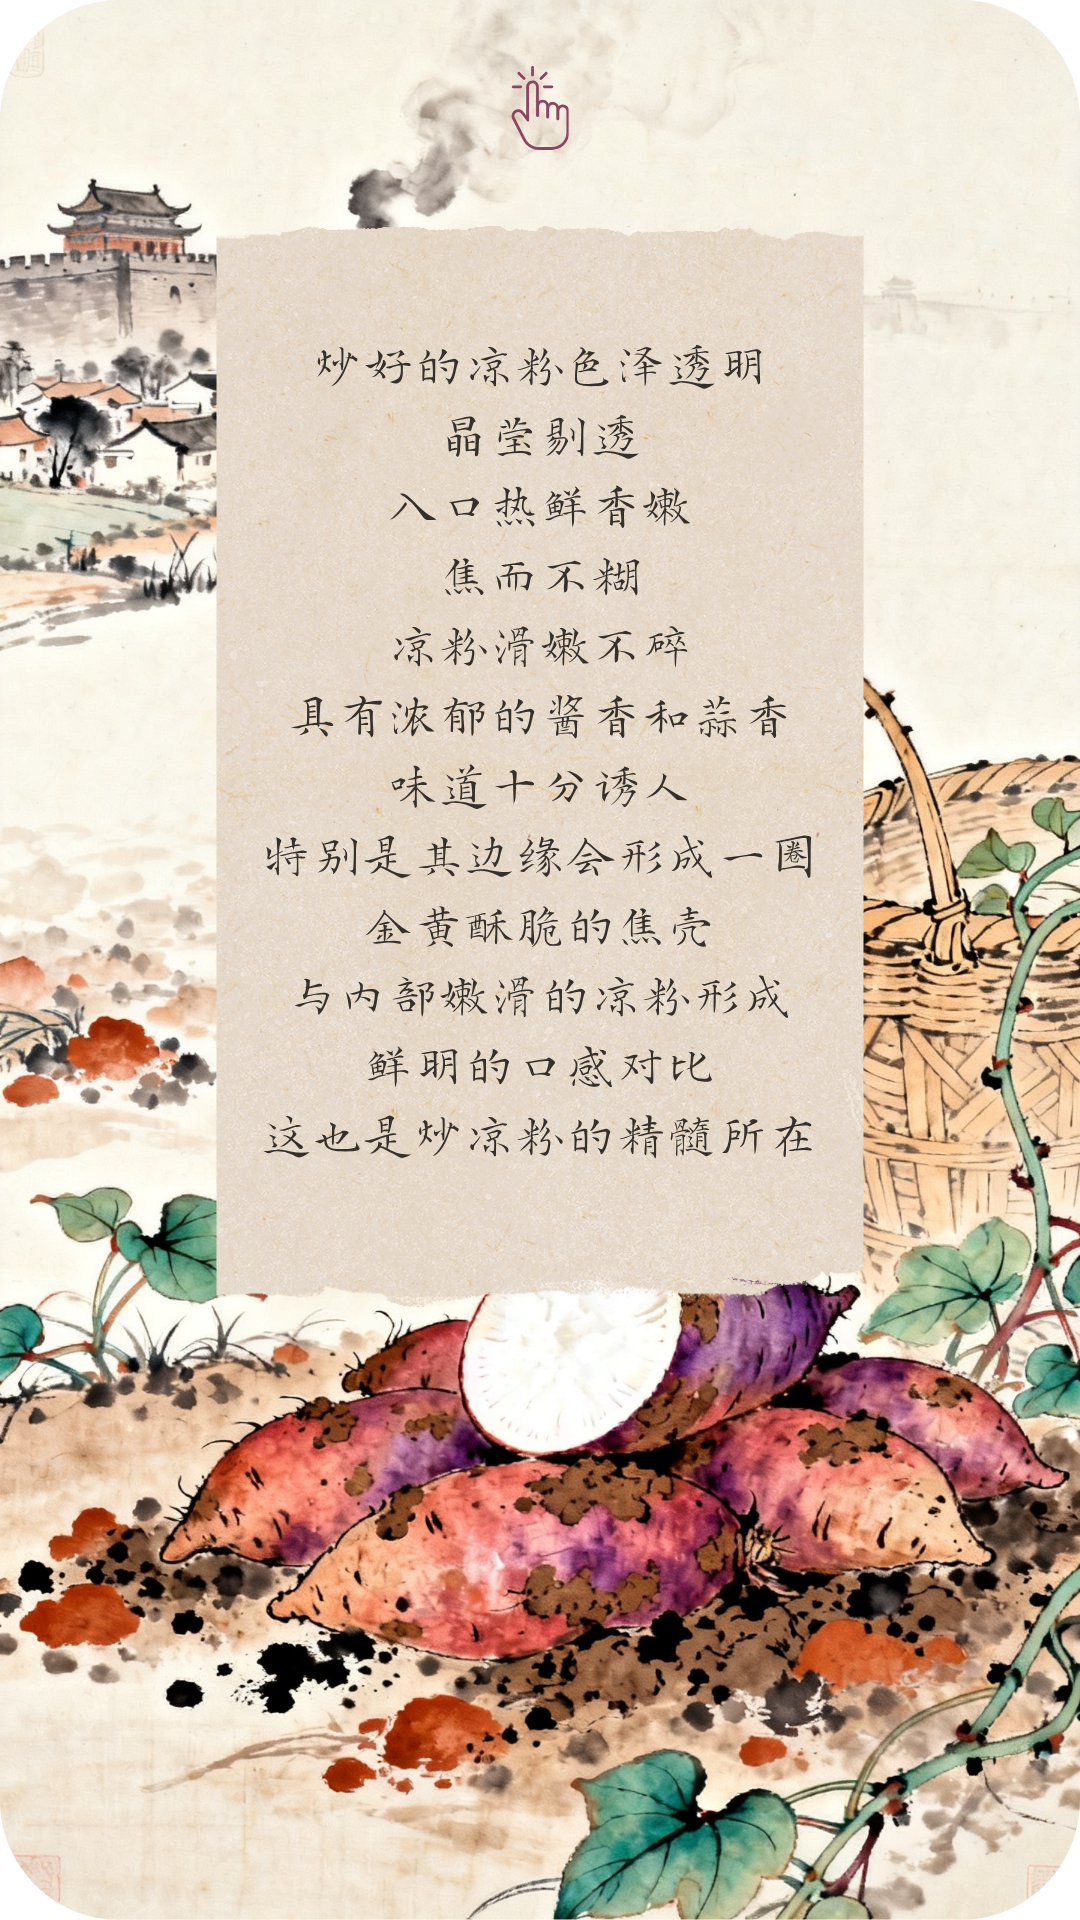 炒好的凉粉色泽透明
晶莹剔透
入口热鲜香嫩
焦而不糊
凉粉滑嫩不碎
具有浓郁的酱香和蒜香
味道十分诱人
特别是其边缘会形成一圈
金黄酥脆的焦壳
与内部嫩滑的凉粉形成
鲜明的口感对比
这也是炒凉粉的精髓所在